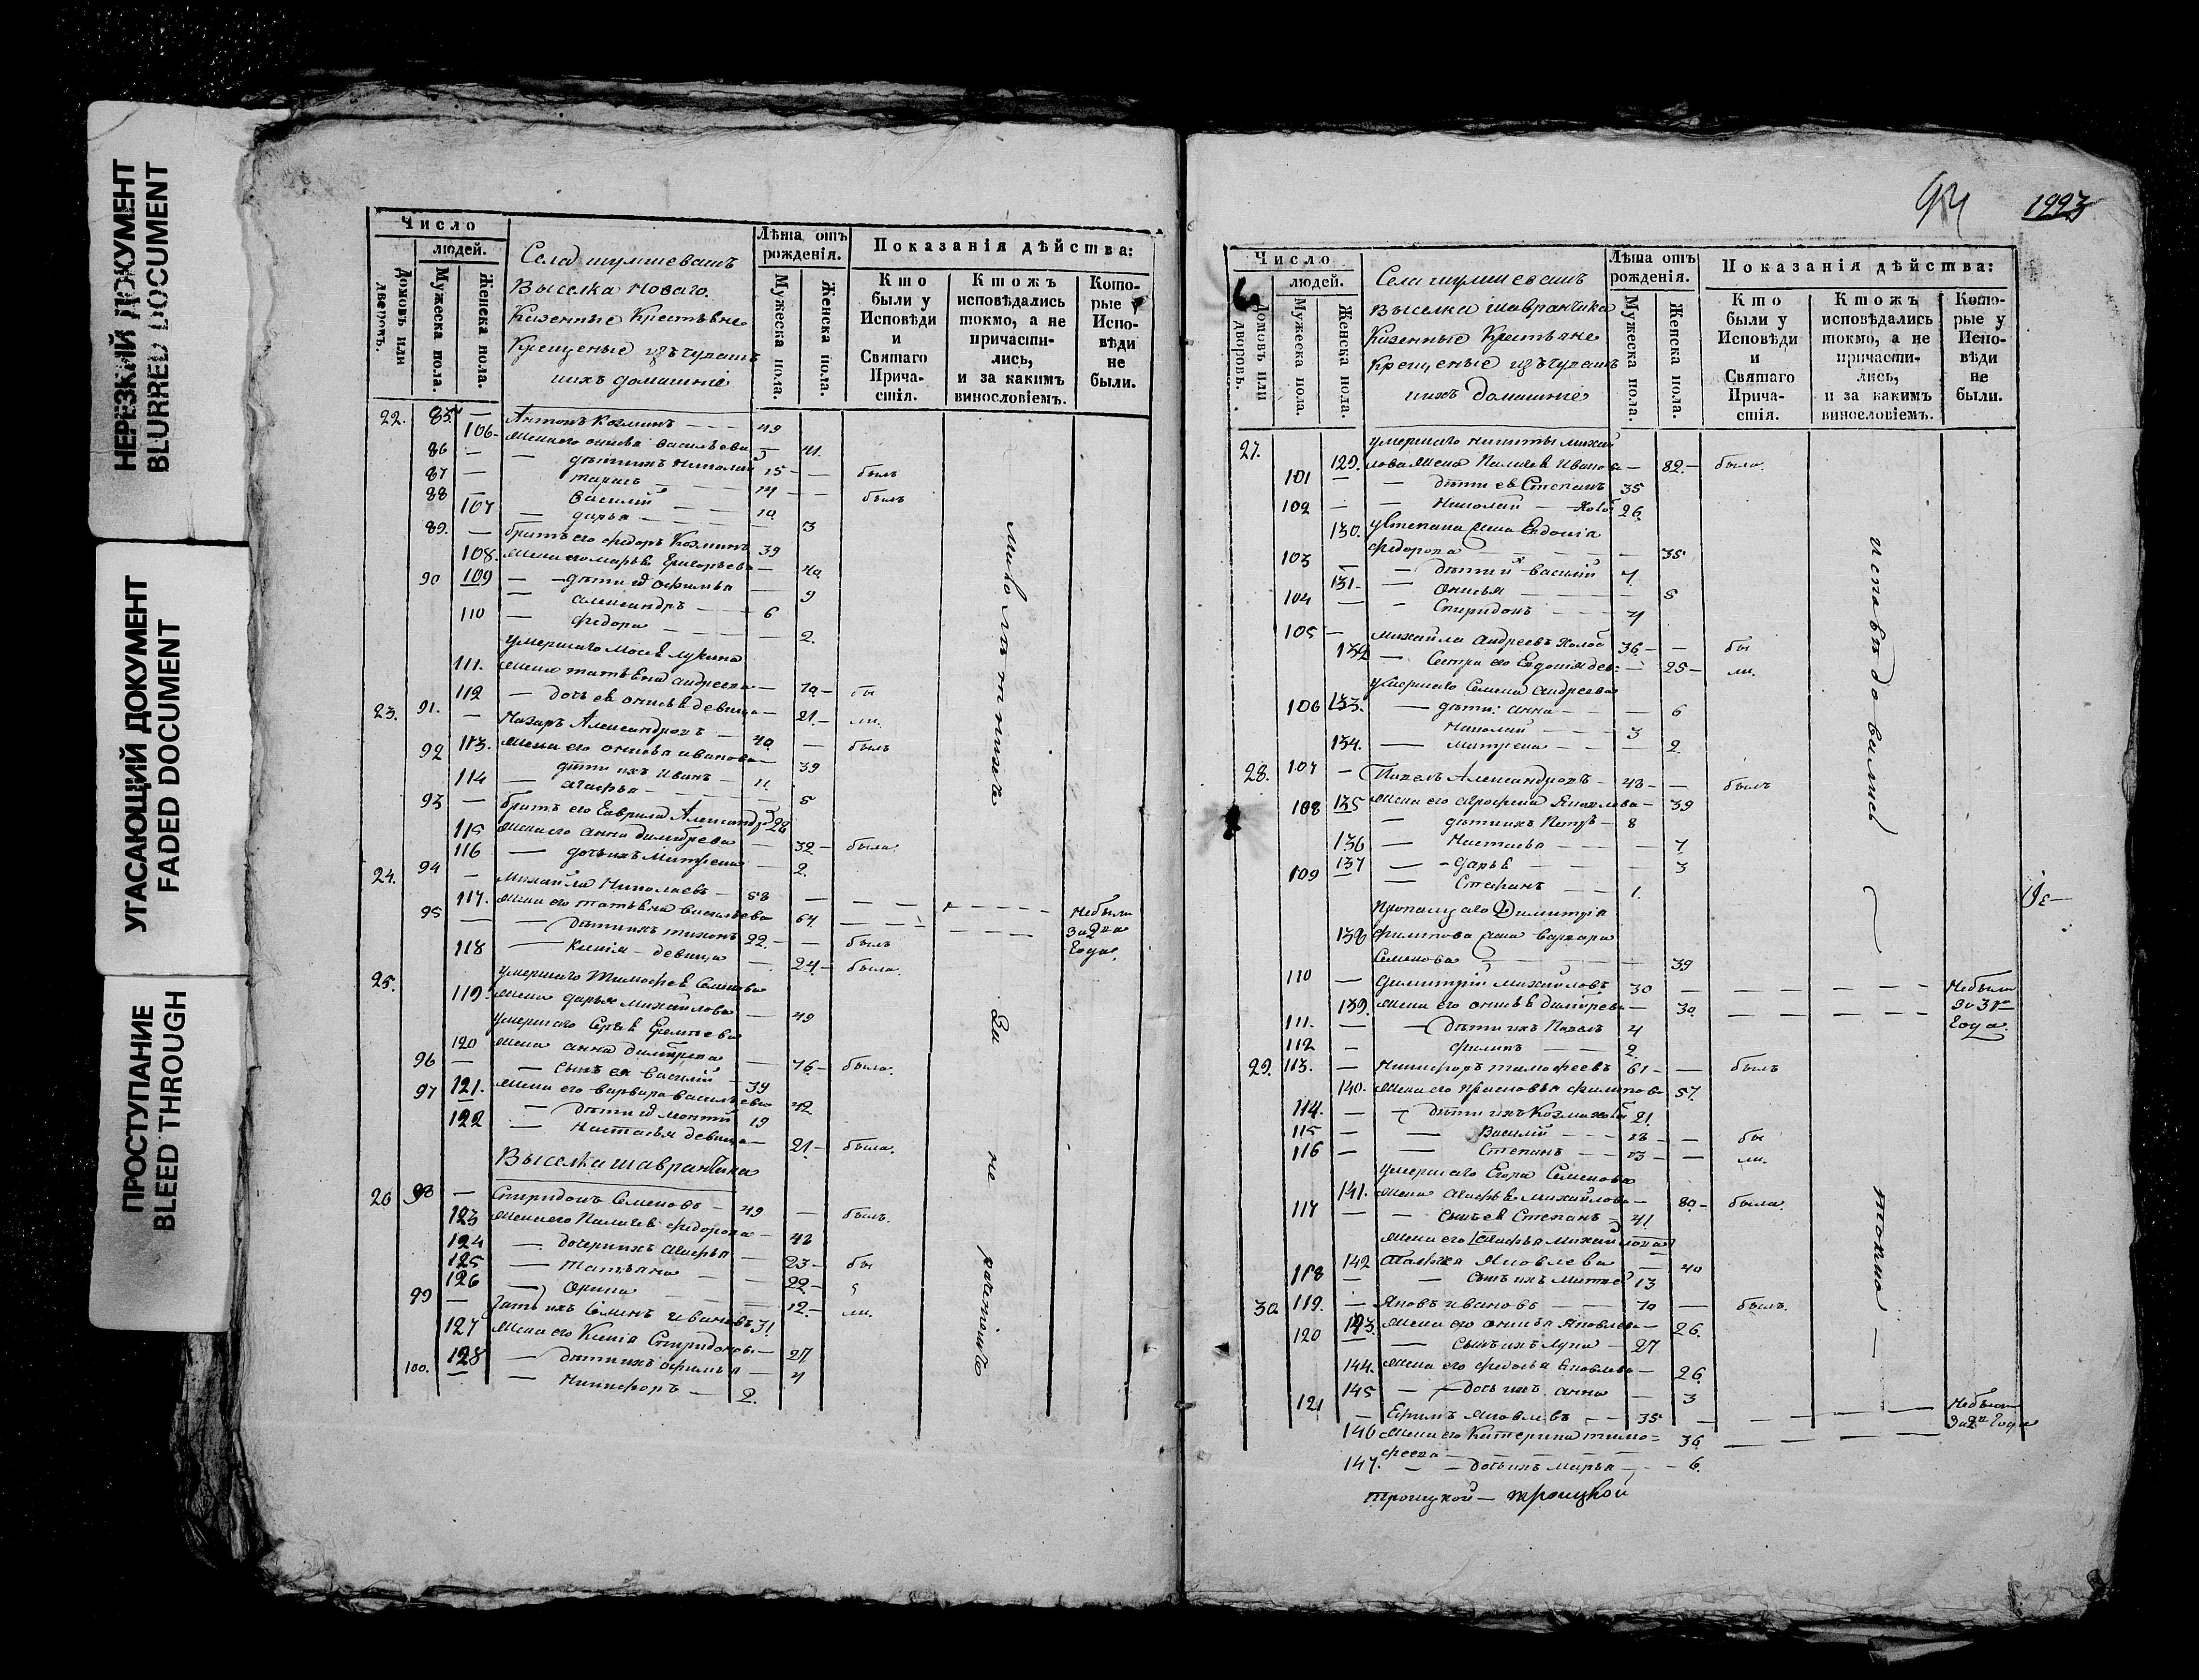 НЕРЕЗКИЙ ДОКУМЕНТ
BLURRED DOCUMENT
УГАСАЮЩИЙ ДОКУМЕНТ
FADED DOCUMENT
ПРОСТУПАНИЕ
BLEED THROUGH
Число
людей.
Домовъ или дворовъ.
Мужеска пола.
Женска пола.
Села шумшевашъ
Выселка Новаго.
Казенные Крестьяне
Крещеные изъ чувашъ
ихъ домашніе
Лѣта отъ рожденія.
Мужеска пола.
Женска пола.
Показанія дѣйства:
Кто были у Исповѣди и Святаго Причастія.
Ктожъ исповѣдались токмо, а не причастились, и за какимъ винословіемъ.
Которые у Исповѣди не были.
22. 85. — Антонъ Козминъ — 49
106. Жена его онисья васильева — 41.
86 — дѣти ихъ Николай 15 — — былъ
87 — тарасъ 14 — — былъ
88 — Василий 10
107 — дарья — 3
89. — братъ его федоръ Козминъ 39
108. Жена его марья Григорьева — 40
109 — дѣти их афимья — 9
90 — александръ — 6
110 — федора — 2.
умершаго
111. Жена татьяна андреева — 70 — бы
112 — дочь ея онисья девица — 21 — ли.
23. 91. — Назаръ Александровъ — 40 — былъ
113. Жена его онисья иванова — 39
92 дѣти ихъ Иванъ — 11
114 — агафья — 5
93 — братъ его Гаврила Александр 28
115 Жена его анна димитрева — 32 — была
116 — дочь ихъ Матрена — 2.
24. 94 — михайла Николаевъ — 58 — — — —
117. Жена его татьяна васильева 64. — — —
Небыли за 2ва года.
95 — дѣти ихъ тихонъ 22. — — былъ
118 — Ксения — девица — 24 — была.
25. умершаго Тимофея Семенова
119. Жена дарья михайлова — 49
умершаго
120 Жена анна димитрева — 76 — была.
96 — сынъ ея василий — 39
121. Жена его варвара васильева 42
97 — дѣти их 19
122 — настасья девица — 21 — была.
Выселка шавранчика
26 98 — Спиридонъ Семеновъ — 49 — былъ.
123 Жена его Палагея федорова — 48
124 — дочери ихъ агафья — 23 — бы
125 — татьяна — 22 —
126 — орина — 12 — ли.
99 — Зять ихъ Семенъ ивановъ 31
127 Жена его Ксения Спиридонова — 27
128 — дѣти ихъ афимья — 4
100. — Никифоръ — 2.
94
1993
Число
людей.
Домовъ или дворовъ.
Мужеска пола.
Женска пола.
Села шумшевашъ
Выселка шавранчика
Казенные Крестьяне
Крещеные изъ чувашъ
ихъ домашніе
Лѣта отъ рожденія.
Мужеска пола.
Женска пола.
Показанія дѣйства:
Кто были у Исповѣди и Святаго Причастія.
Ктожъ исповѣдались токмо, а не причастились, и за какимъ винословіемъ.
Которые у Исповѣди не были.
27. умершаго никиты михай
129. лова жена Палагея Иванова — 82 — была.
101 — — дѣти ея Степанъ 35
102 — — Николай — холо 26.
130. у Степана жена Евдокия
федорова — 35
103 — — дѣти их василий 7.
131. — онисья — 5
104 — — Спиридонъ — 4
105 — михайла андреевъ холос 36 — — бы
132 — сестра его Евдокия дев: — 25 — ли.
умершаго Семена андреева
133. — дѣти: анна — 6
106 Николай — 3
134. — матрена — 2.
28. 107 — Павелъ Александровъ — 43 — — былъ
135 Жена его Яковлева — 39
108 — дѣти ихъ Петръ — 8
136 — Настасья — 7
137 — дарья — 3
109 — Степанъ — 1.
пропалаго Димитрия
138 филипова жена варвара
Семенова — 39
110 — димитрий михайловъ 30 — — — — —
139. Жена его онисья димитрева — 30 — — — — —
Небыли за 3 года.
111. — дѣти ихъ Павелъ 4
112 — филипъ — 2.
29. 113. — Никифоръ тимофеевъ 61 — — былъ
140. Жена его прасковья филипова 57.
114. — дѣти ихъ Козма холо 21.
115 — — Василий — 18 — — бы
116 — — Степанъ — 13 — — ли.
умершаго Егора Семенова
141. Жена агафья михайлова — 80 — была.
117 — — сынъ ея Степанъ 41.
Жена его
142 Яковлева — 40
118 — — сынъ ихъ матвей 13
30. 119. — Яковъ ивановъ — 70 — былъ.
143. Жена его ониса Яковлева — 26.
120 — сынъ ихъ лука — 27
144. Жена его федосья Яковлева — 26.
145 — дочь ихъ анна — 3
121 — Ефимъ Яковлевъ — 35 — — — —
146 Жена его Катерина тимо= 36 — — —
феева
Небыли за 2а года
147. — дочь ихъ марья — 6.
исповѣдовались
токмо —
троицкой — троицкой